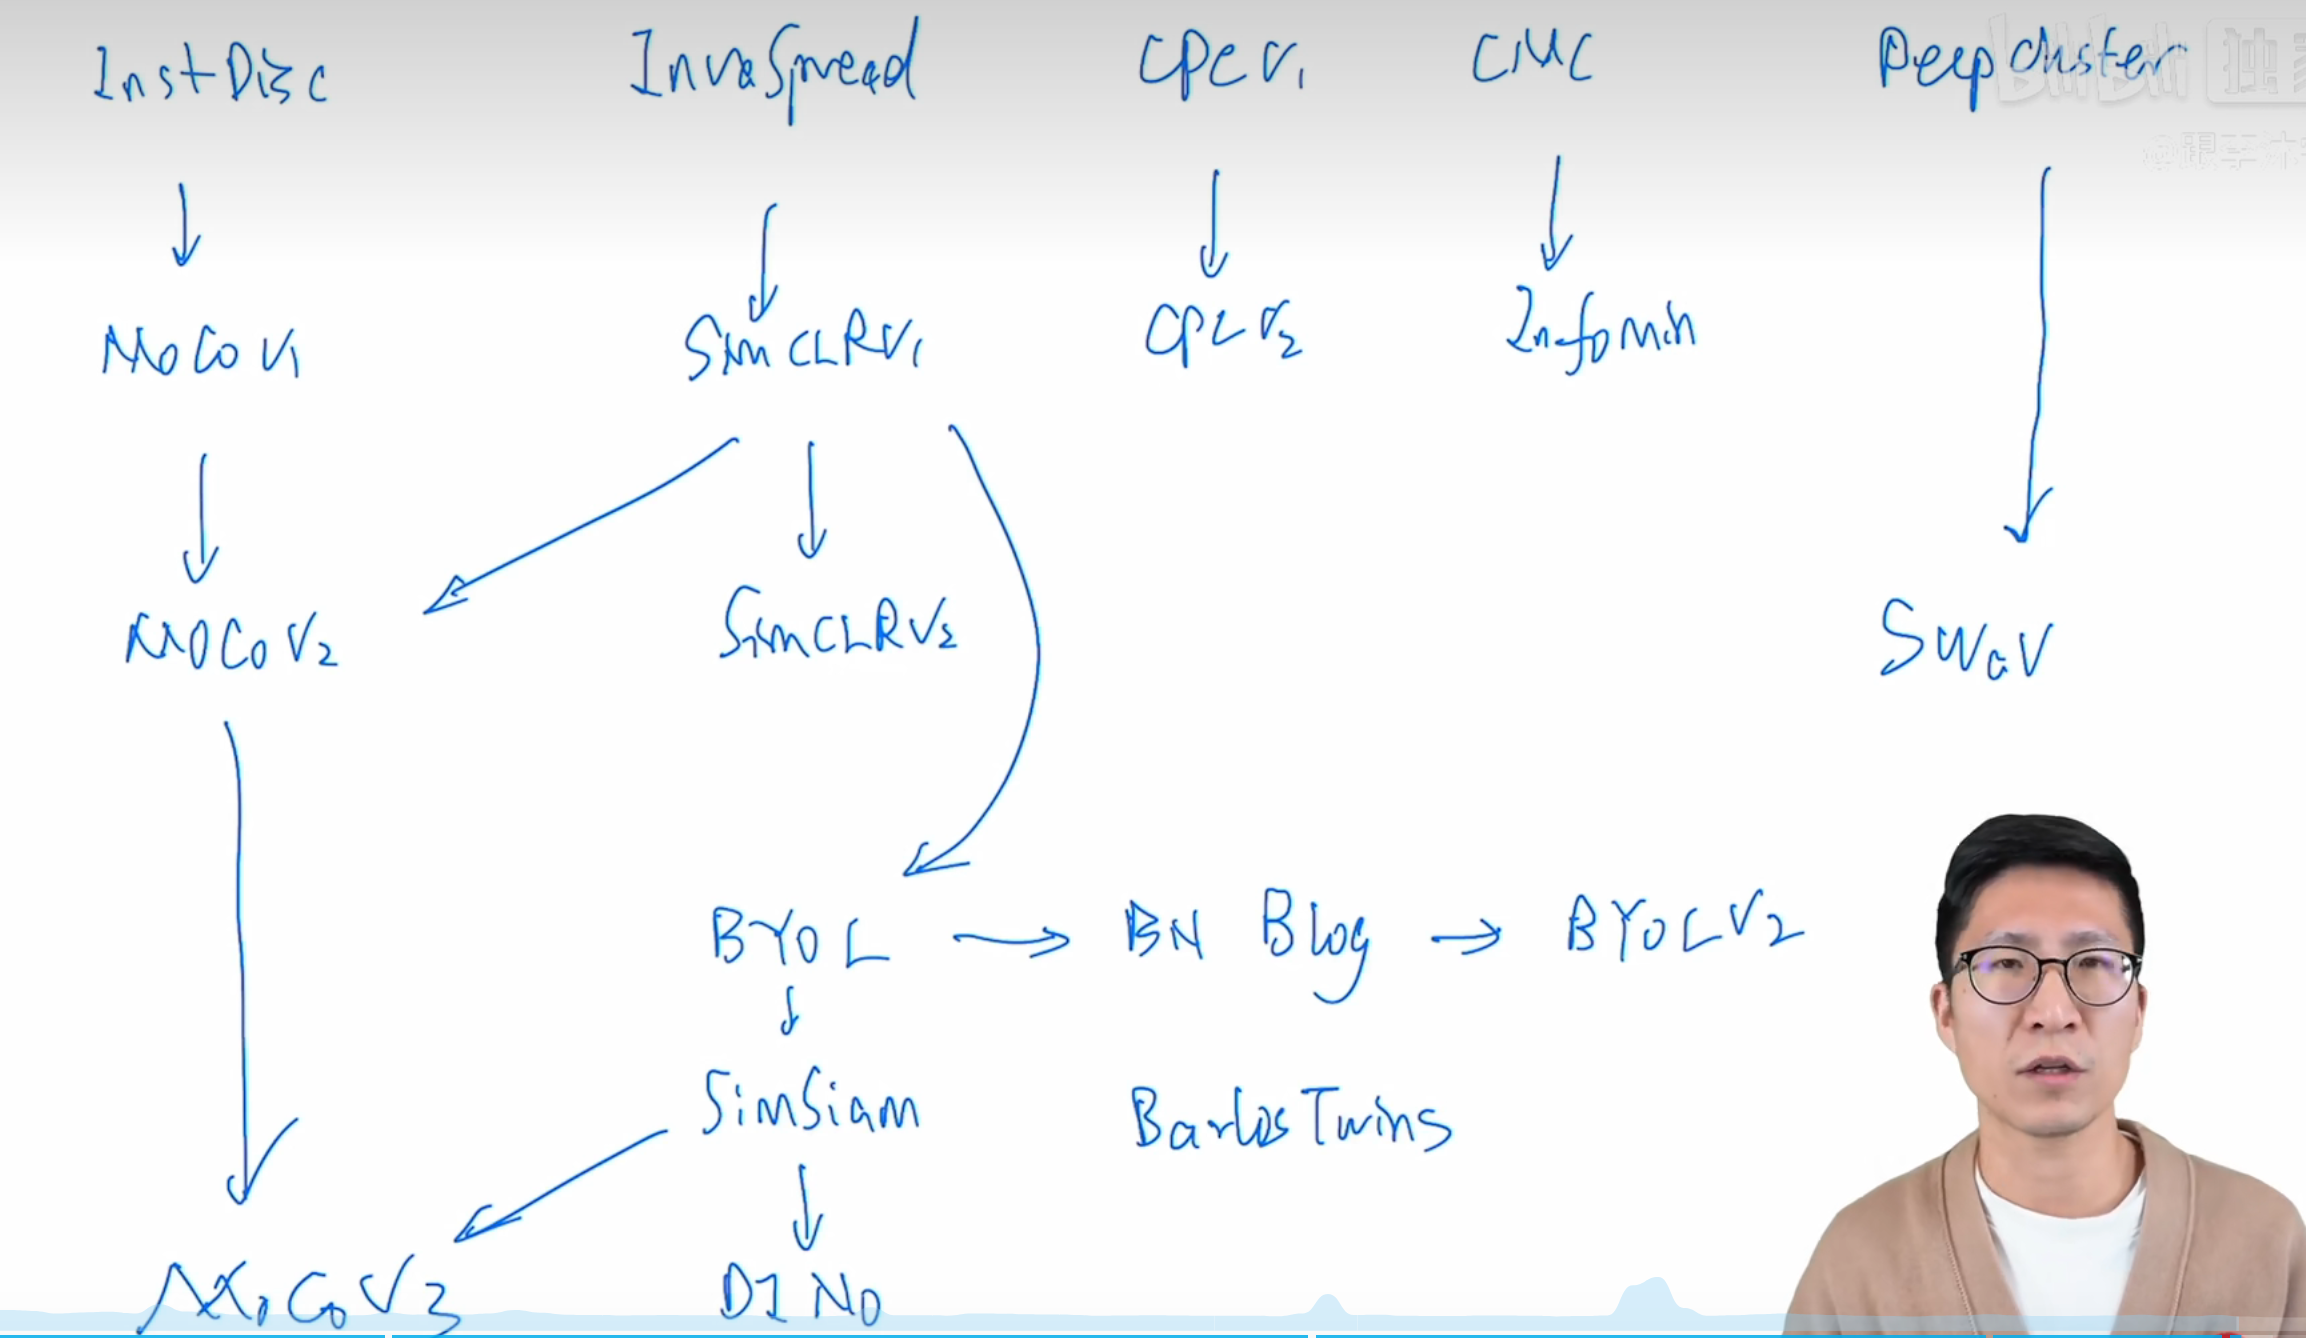 InstDisc InvaSpread CPCV1 CMC DeepCluster
bilibili 独家
@跟李沐
MoCoV1 SimCLRV1 CPCV2 InfoMin
MoCoV2 SimCLRV2 SWaV
BYOL BN Blog BYOLV2
SimSiam BarlosTwins
MoCoV3 DINO